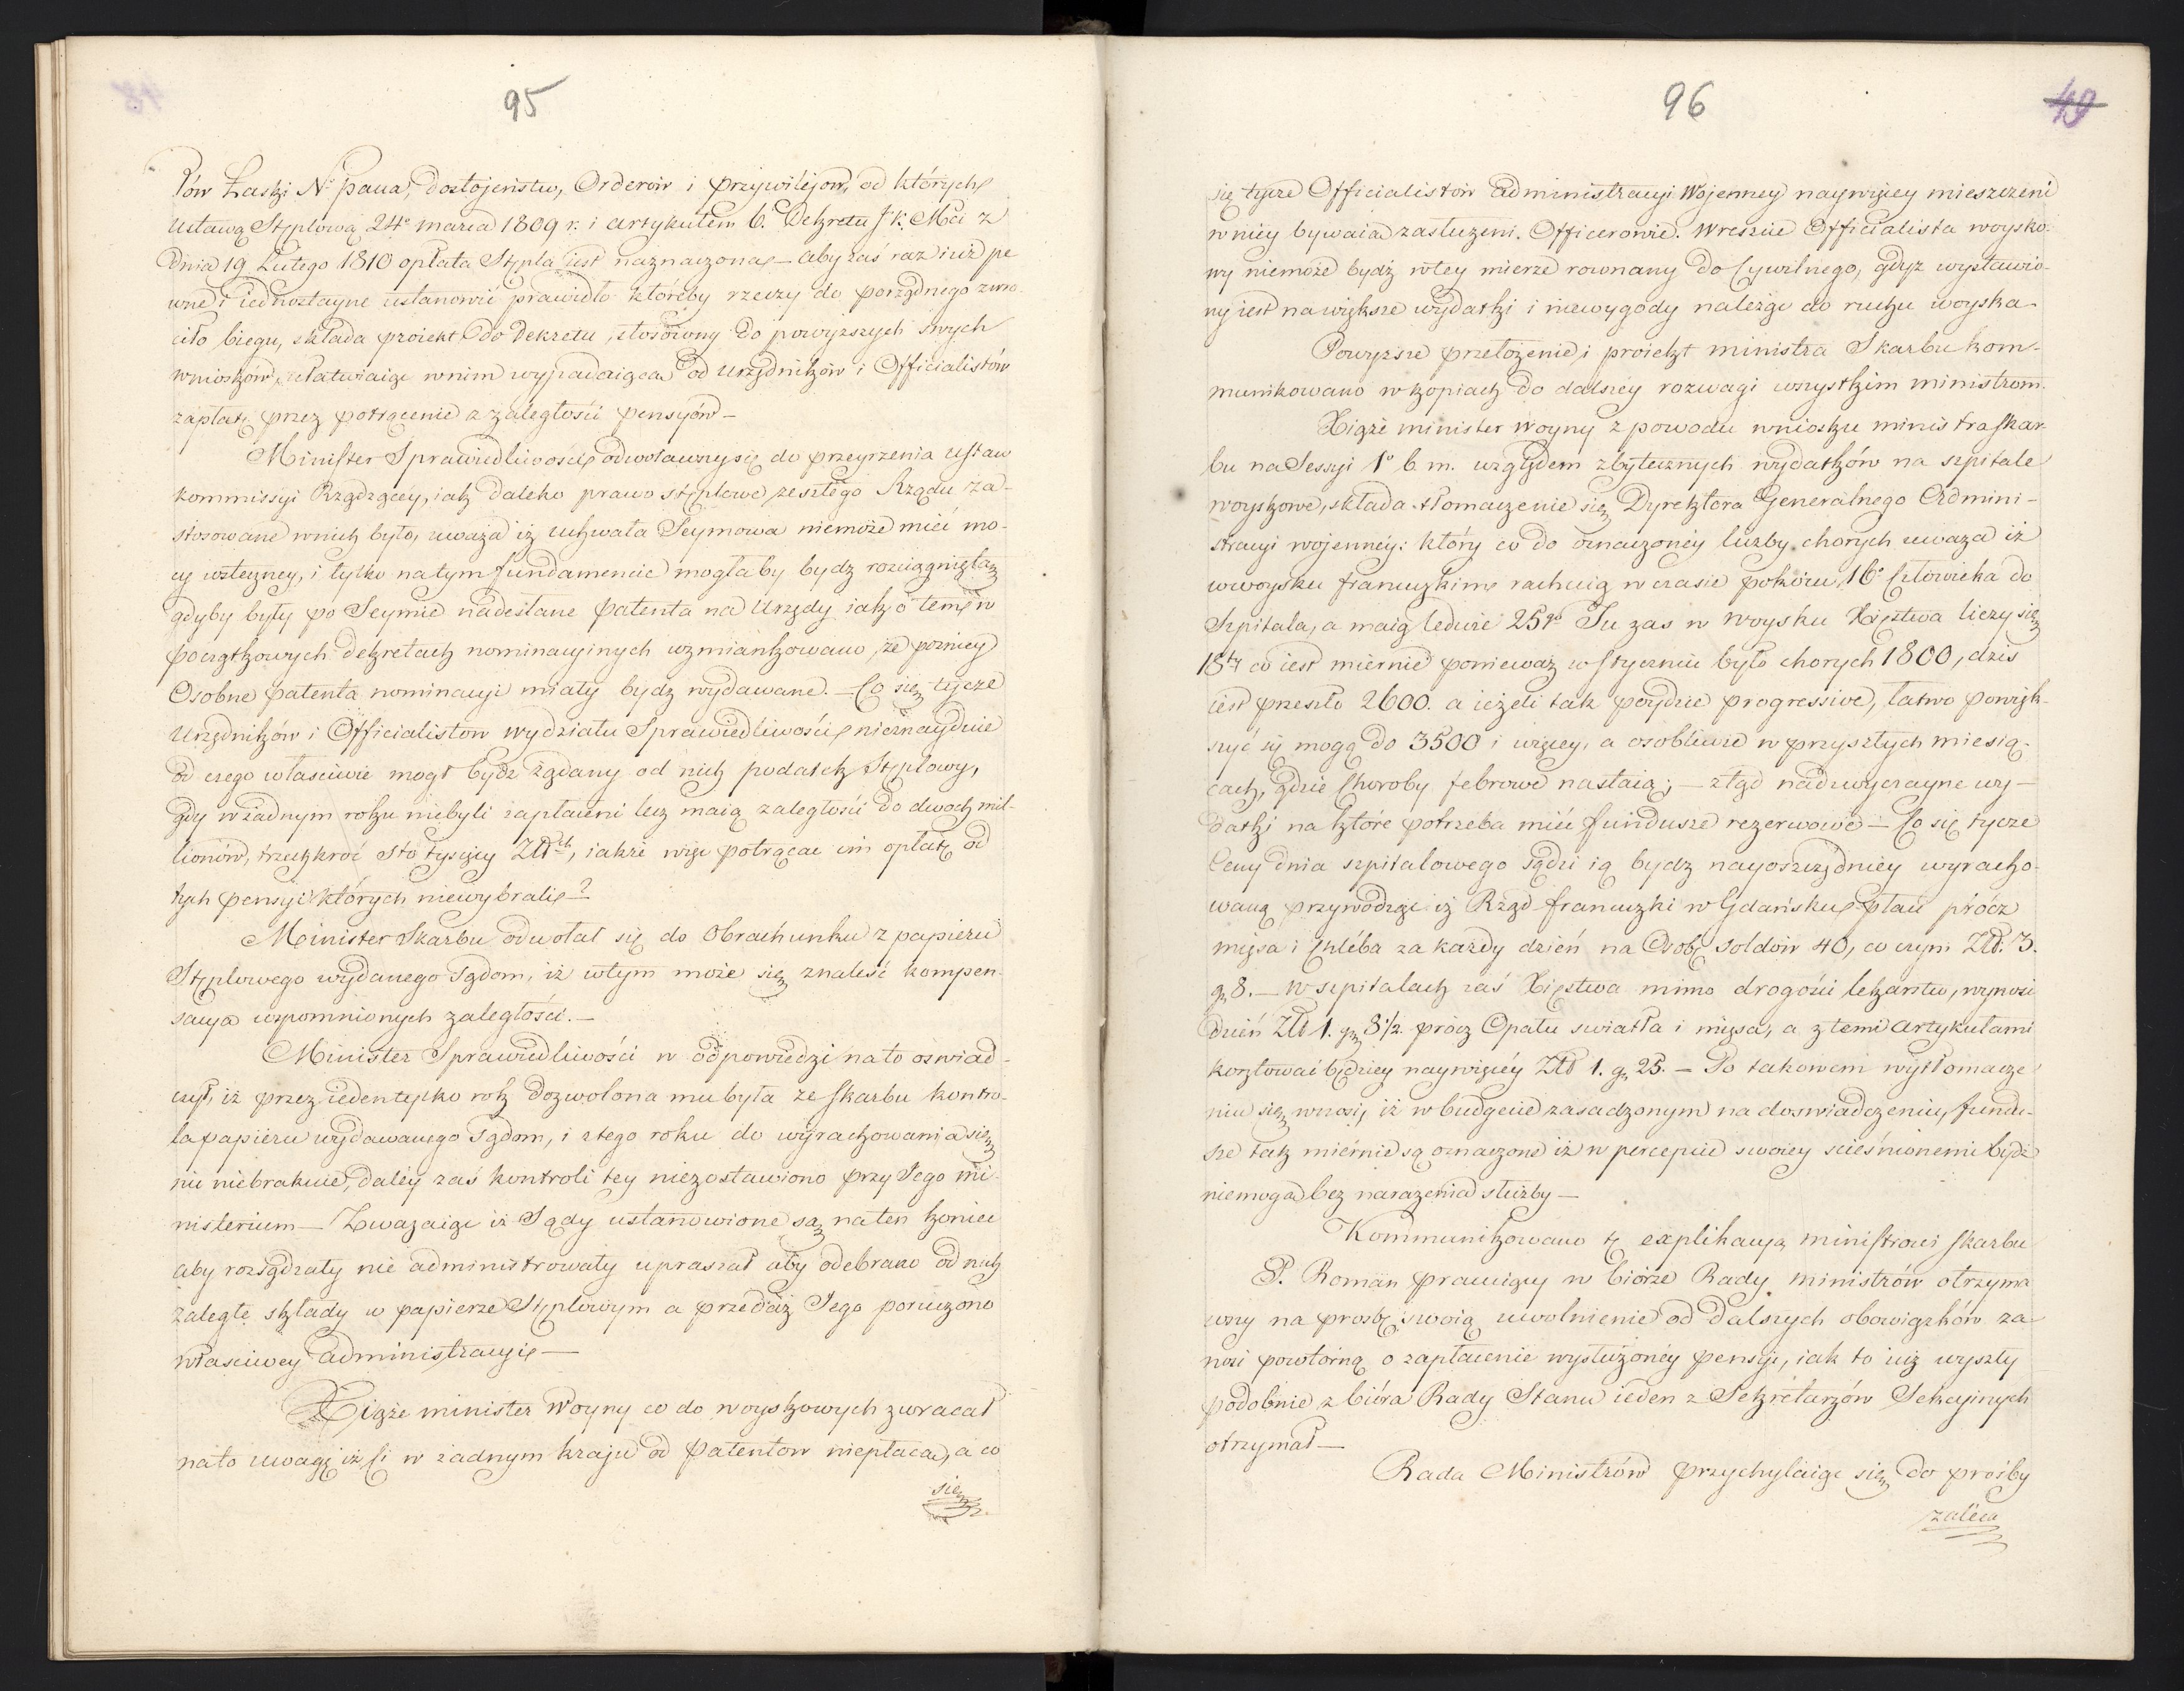 95
łów Łaski N. Pana, dostojeństw, Orderów i przywilejow, od których
Ustawą Stęplową 24o marca 1809 r. i artykułem 6. Dekretu J. K. Mci z
Dnia 19 Lutego 1810 opłata Stępla iest naznaczona – aby zaś raz iuż pe
wne i iednostayne ustanowić prawidło któreby rzeczy do porządnego zwró-
ciło biegu, składa proiekt do Dekretu, stosowny do powyższych swych
wniosków, ułatwiaiąc wnim wypadaiącą od Urzędników i Officialistów
zapłatę przez potrącenie z zaległości pensyów –
Minister Sprawiedliwości odwoławszy się do przeyrzenia ustaw
kommissyi Rządzącéy, iak daleko prawo stęplowe zeszłego Rządu za-
stosowane wnich było, uważa iż uchwała Seymowa niemoże mieć mo-
cy wsteczney, i tylko na tym fundamencie mogłaby bydz rozciągnięta
gdyby były po Seymie nadesłane Patenta na Urzędy iak o tem w
początkowych dekretach nominacyinych wzmiankowano, że pozniey
Osobne patenta nominacyi miały bydz wydawane. – Co się tycze
Urzędników i Officialistow wydziału Sprawiedliwości nieznayduie
od czego właściwie mógł bydz żądany od nich podatek Stęplowy,
gdy w żadnym roku niebyli zapłaceni lecz maią zaległości do dwóch mil-
lionów, trzechkroć sto tysięcy Złtch, iakże więc potrącać im opłatę od
tych pensyi których niewybrali?
Minister Skarbu odwołał się do Obrachunku z papieru
Stęplowego wydanego Sądom, iż wtym może się znaleść kompen-
sacya wspomnionych zaległości. –
Minister Sprawiedliwości w odpowiedzi na to oswiad-
czył, iż przez ieden tylko rok dozwolona mu była ze skarbu kontro-
la papieru wydawanego Sądom, i z tego roku do wyrachowania się
nic niebrakuie, daléy zaś kontroli tey niezostawiono przy Jego mi-
nisterium – Zważaiąc iż Sądy ustanowione są na ten koniec
aby rozsądzały nie administrowały upraszał aby odebrano od nich
zaległe składy w papierze Stęplowym a przedaż Jego poruczono
właściwey administracyi –
Xiąże minister Woyny co do woyskowych zwracał
na to uwagę iż Ci w żadnym kraju od Patentow niepłacą, a co
się
96
49
się tycze Officialistów administracyi Wojenney naywięcey mieszczeni
w niéy bywaią zasłużeni Officerowie. Wreszcie Officialista woysko-
wy niemoże bydź wtey mierze rownany do Cywilnego, gdyż wystawio-
ny iest na większe wydatki i niewygody należąc do ruchu woyska –
Powyższe przełożenie i proiekt ministra Skarbu kom-
munikowano w kopiach do dalszéy rozwagi wszystkim ministrom.
Xiąże minister Woyny z powodu wniosku ministra skar-
bu na Sessyi 1o b. m. względem zbytecznych wydatków na szpitale
woyskowe, składa tłomaczenie się Dyrektora Generalnego Admini-
stracyi wojennéy: który co do oznaczonéy liczby chorych uważa iż
w woysku francuzkim rachuią w czasie pokoiu 16o Człowieka do
Szpitala, a maią ledwie 25go Tu zaś w woysku Xięstwa liczy się
18ty co iest miernie ponieważ w styczniu było chorych 1800, dziś
iest przeszło 2600. a ieżeli tak poydzie progressive, łatwo powięk-
szyć się mogą do 3500 i więcey, a osobliwie w przyszłych miesią-
cach, gdzie choroby febrowe nastaią; – ztąd nadzwyczayne wy-
datki na które potrzeba mieć fundusze rezerwowe – Co się tycze
Ceny dnia szpitalowego sądzi ią bydz nayoszczędniey wyracho-
waną przywodząc iż Rząd francuzki w Gdańsku płaci prócz
mięsa i Chléba za każdy dzień na Osobę soldów 40, co czym Złt. 3.
g. 8. – w szpitalach zaś Xięstwa mimo drogości lekarstw, wynosi
Dzień Złt 1. gr. 8 1/2. prócz Opału swiatła i mięsa, a z temi artykułami
kosztować będziey naywięcéy Złt 1. g. 25. – Po takowem wytłomacze
niu się wnosi, iż w budgecie zasadzonym na doswiadczeniu, fundu-
sze tak miernie są oznaczone iż w percepcie swoiey scieśnionemi bydź
niemogą bez narażenia służby –
Kommunikowano tę explikacyą ministrowi skarbu
P. Roman pracuiący w biórze Rady ministrów otrzyma
wszy na prosbę swoią uwolnienie od dalszych obowiązków za
nosi powtórną o zapłacenie wysłużonéy pensyi, iak to iuż wyszły
podobnie z bióra Rady Stanu ieden z Sekretarzów Sekcyinych
otrzymał –
Rada Ministrów przychylaiąc się do prośby
zaleca